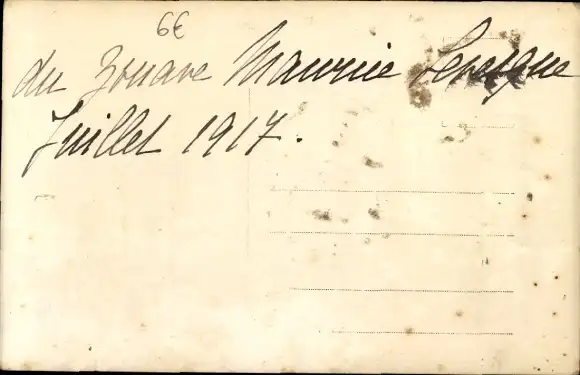 6€
du Zouave Maurice
Juillet 1917.